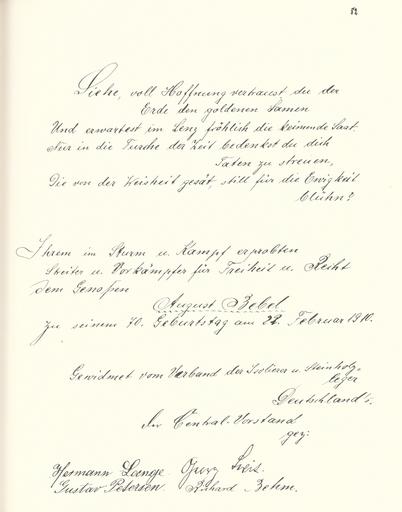 52
Siehe, voll Hoffnung vertraust du der
Erde den goldenen Samen
Und erwartest im Lenz fröhlich die keimende Saat.
Nur in die Furche der Zeit bedenkst du dich
Taten zu streuen,
Die von der Weisheit gesät, still für die Ewigkeit
blühn?
Ihrem im Sturm u. Kampf erprobten
Streiter u. Vorkämpfer für Freiheit u. Recht
dem Genossen
August Bebel
zu seinem 70. Geburtstag am 22. Februar 1910.
Gewidmet vom Verband der Isolierer u. Steinholz-
leger
Deutschland's.
Der Central-Vorstand
gez:
Hermann Lange.
Gustav Petersen. Richard Böhm.